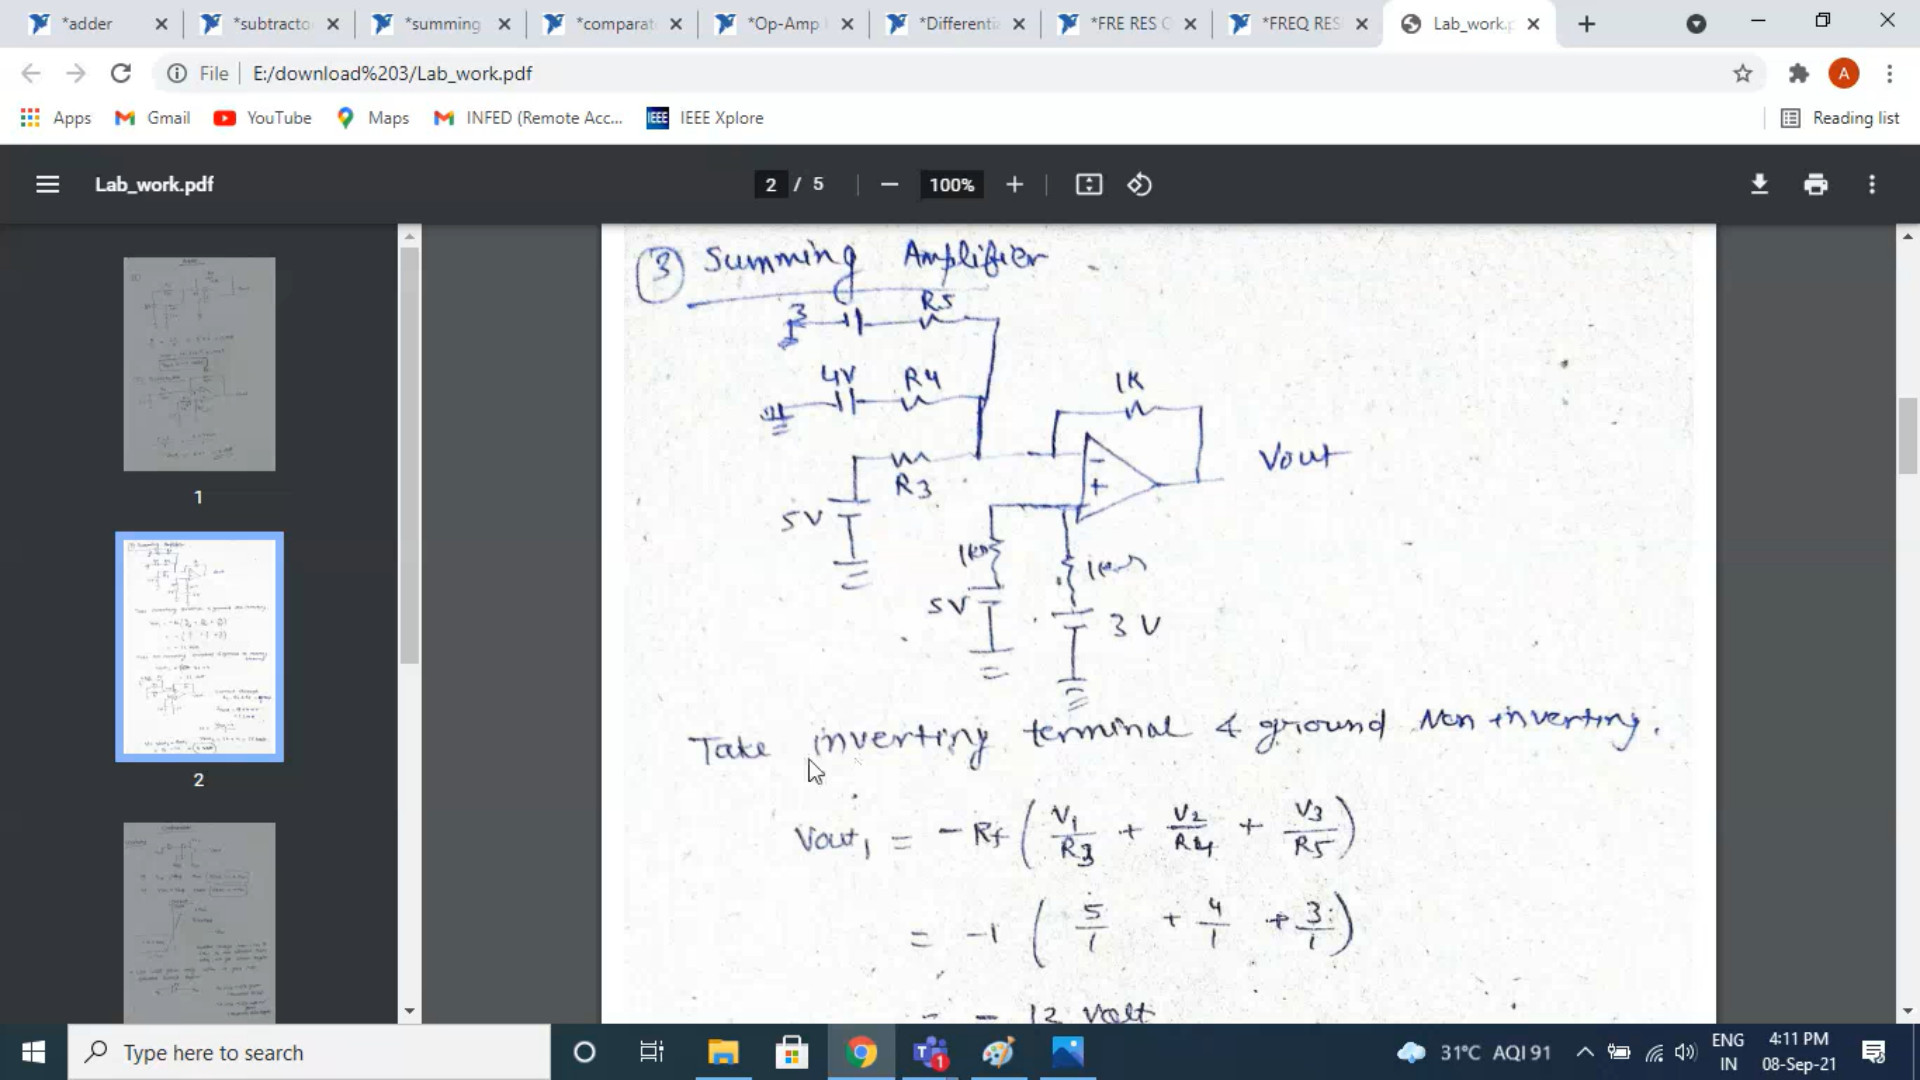 *adder
*subtracto
*summing
*comparat
*Op-Amp
*Differenti
*FRE RES C
*FREQ RES
Lab_work.p
File
E:/download%203/Lab_work.pdf
A
Apps
Gmail
YouTube
Maps
INFED (Remote Acc...
IEEE
IEEE Xplore
Reading list
Lab_work.pdf
2 / 5
100%
1
2
3 Summing Amplifier
3 R5
4V R4
1K
R3
- 
+
Vout
5V
1kΩ
1kΩ
5V
3 V
Take inverting terminal & ground Non inverting.
Vout1 = - Rf ( V1/R3 + V2/R4 + V3/R5 )
= -1 ( 5/1 + 4/1 + 3/1 )
= - 12 Volt
Type here to search
1
31°C AQI 91
ENG
IN
4:11 PM
08-Sep-21